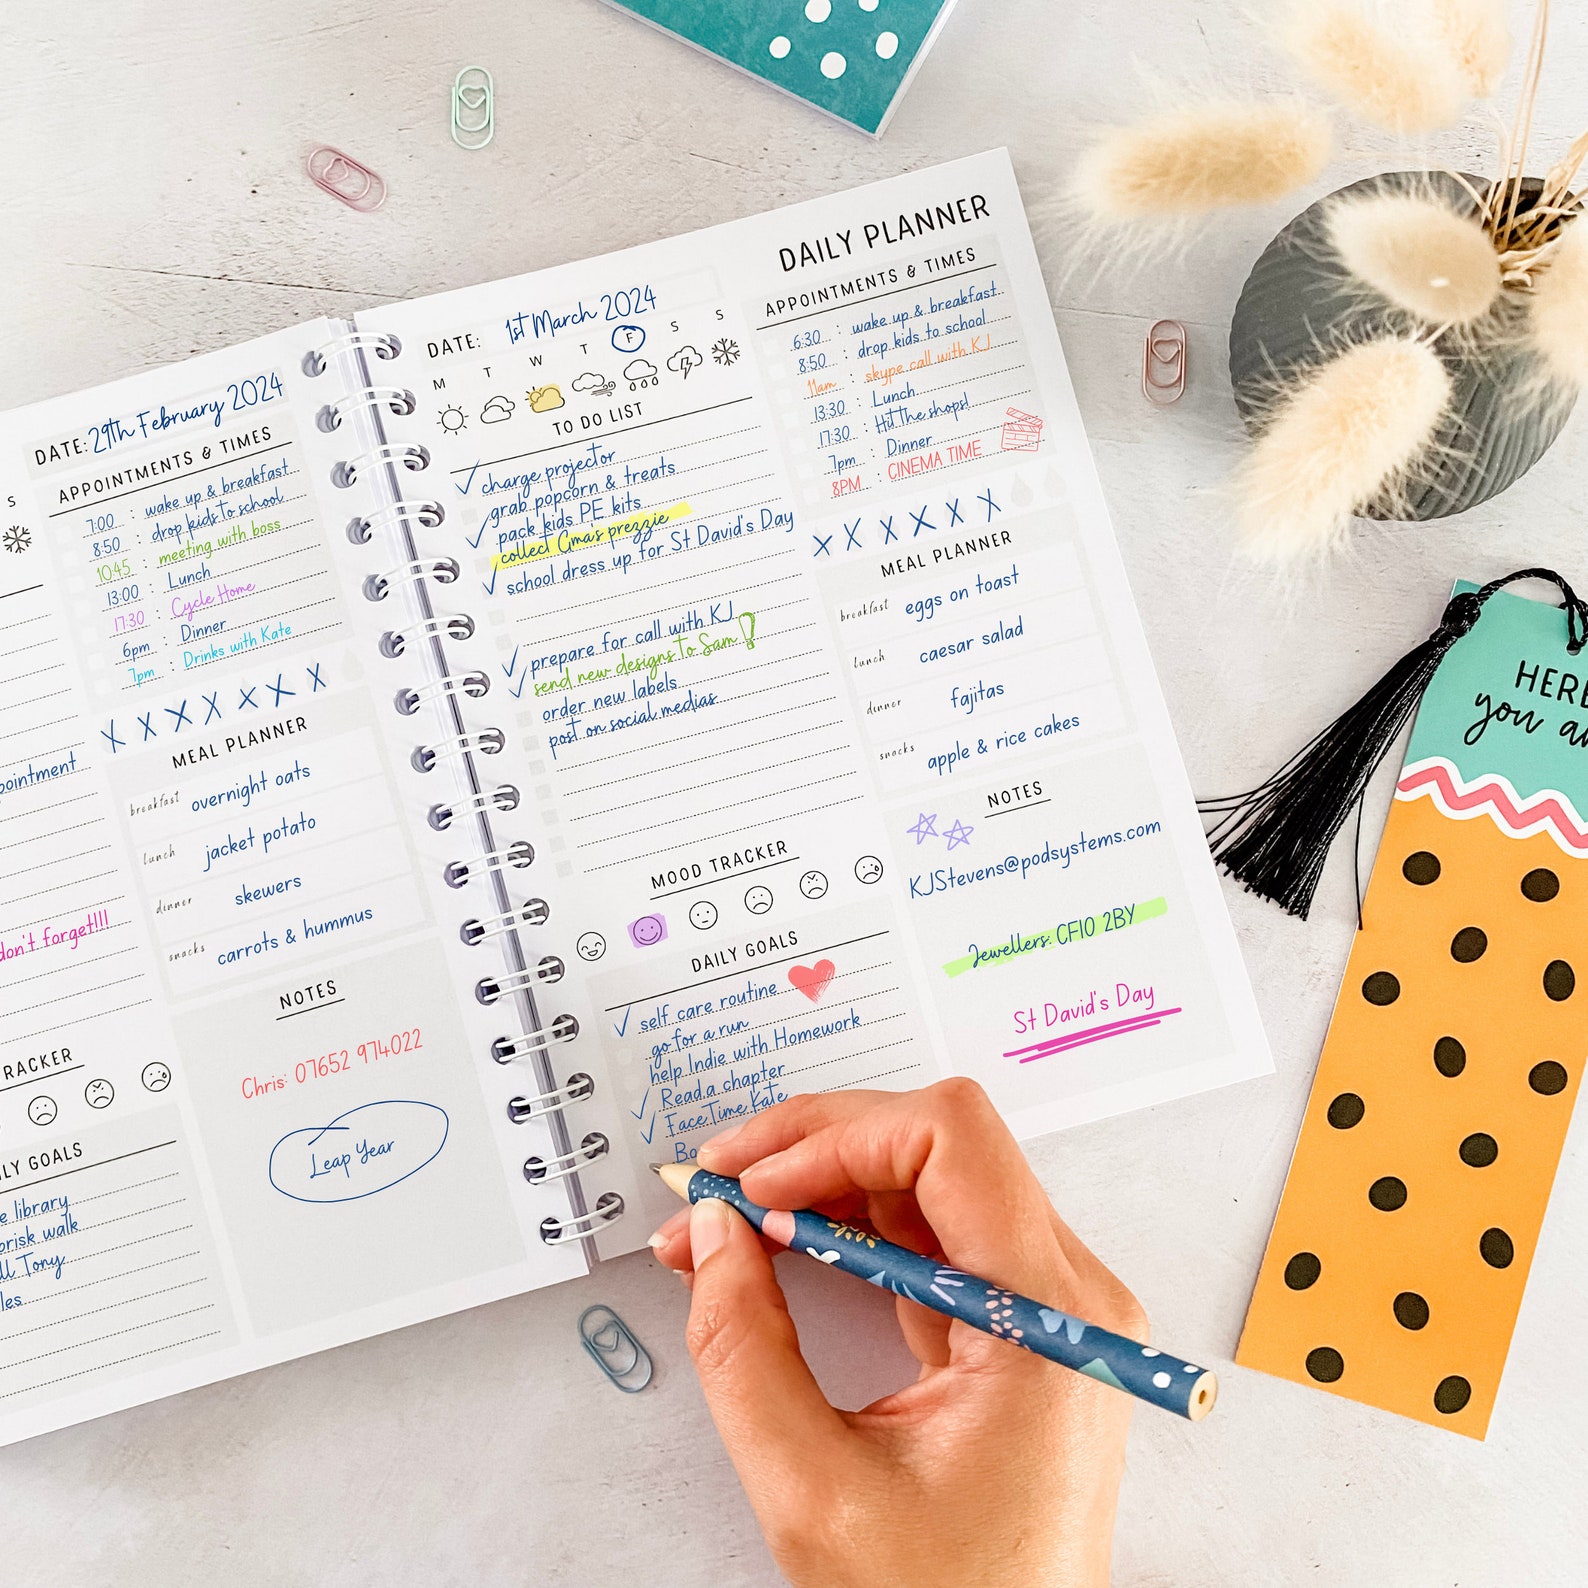 S
pointment
don't forget!!!
TRACKER
LY GOALS
e library
brisk walk
ll Tony
les
DATE: 29th February 2024
APPOINTMENTS & TIMES
7:00 : wake up & breakfast
8:50 : drop kids to school
10:45 : meeting with boss
13:00 : Lunch
17:30 : Cycle Home
6pm : Dinner
7pm : Drinks with Kate
X X X X X X X
MEAL PLANNER
breakfast overnight oats
lunch jacket potato
dinner skewers
snacks carrots & hummus
NOTES
Chris: 07652 974022
Leap Year
DATE: 1st March 2024
M T W T F S S
TO DO LIST
✓ charge projector
grab popcorn & treats
✓ pack kids PE kits
collect Gma's prezzie
✓ school dress up for St David's Day
✓ prepare for call with KJ
✓ send new designs to Sam!
order new labels
post on social medias
MOOD TRACKER
DAILY GOALS
✓ self care routine
go for a run
help Indie with Homework
✓ Read a chapter
✓ FaceTime Kate
Bo
DAILY PLANNER
APPOINTMENTS & TIMES
6:30 : wake up & breakfast
8:50 : drop kids to school
11am : skype call with KJ
13:30 : Lunch
17:30 : Hit the shops!
7pm : Dinner
8PM : CINEMA TIME
X X X X X X
MEAL PLANNER
breakfast eggs on toast
lunch caesar salad
dinner fajitas
snacks apple & rice cakes
NOTES
KJStevens@podsystems.com
Jewellers: CF10 2BY
St David's Day
HERE
you a